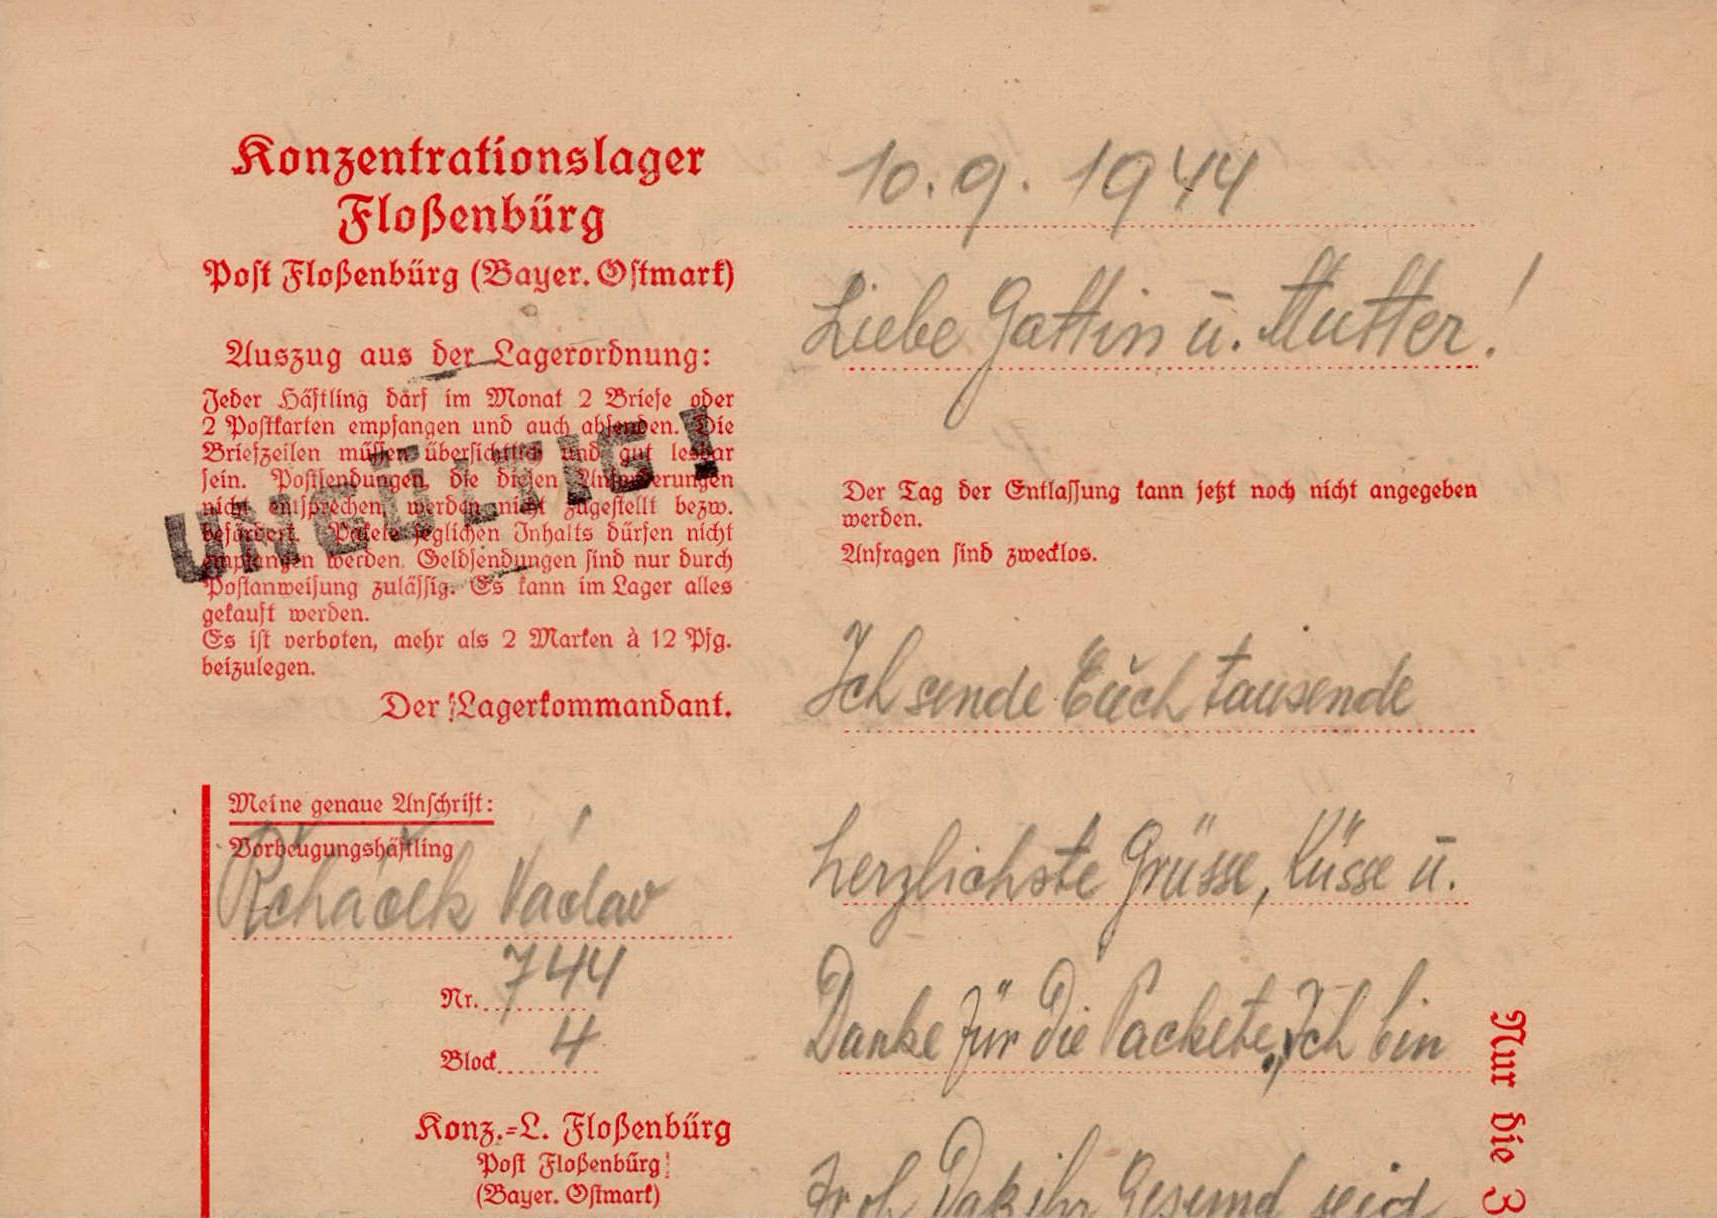 Konzentrationslager
Floßenbürg
Post Floßenbürg (Bayer. Ostmark)
Auszug aus der Lagerordnung:
Jeder Häftling darf im Monat 2 Briefe oder
2 Postkarten empfangen und auch absenden. Die
Briefzeilen müssen übersichtlich und gut lesbar
sein. Postsendungen, die diesen Anforderungen
nicht entsprechen, werden nicht zugestellt bezw.
befördert. Pakete jeglichen Inhalts dürfen nicht
empfangen werden. Geldsendungen sind nur durch
Postanweisung zulässig. Es kann im Lager alles
gekauft werden.
Es ist verboten, mehr als 2 Marken à 12 Pfg.
beizulegen.
Der Lagerkommandant.
UNGÜLTIG!
Meine genaue Anschrift:
Vorbeugungshäftling
Řeháček Václav
Nr. 744
Block 4
Konz.-L. Floßenbürg
Post Floßenbürg
(Bayer. Ostmark)
10. 9. 1944
Liebe Gattin u. Mutter!
Der Tag der Entlassung kann jetzt noch nicht angegeben
werden.
Anfragen sind zwecklos.
Ich sende Euch tausende
herzlichste Grüsse, Küsse u.
Danke für die Packete, Ich bin
Froh, Dak ihr Gesund seid
Nur die